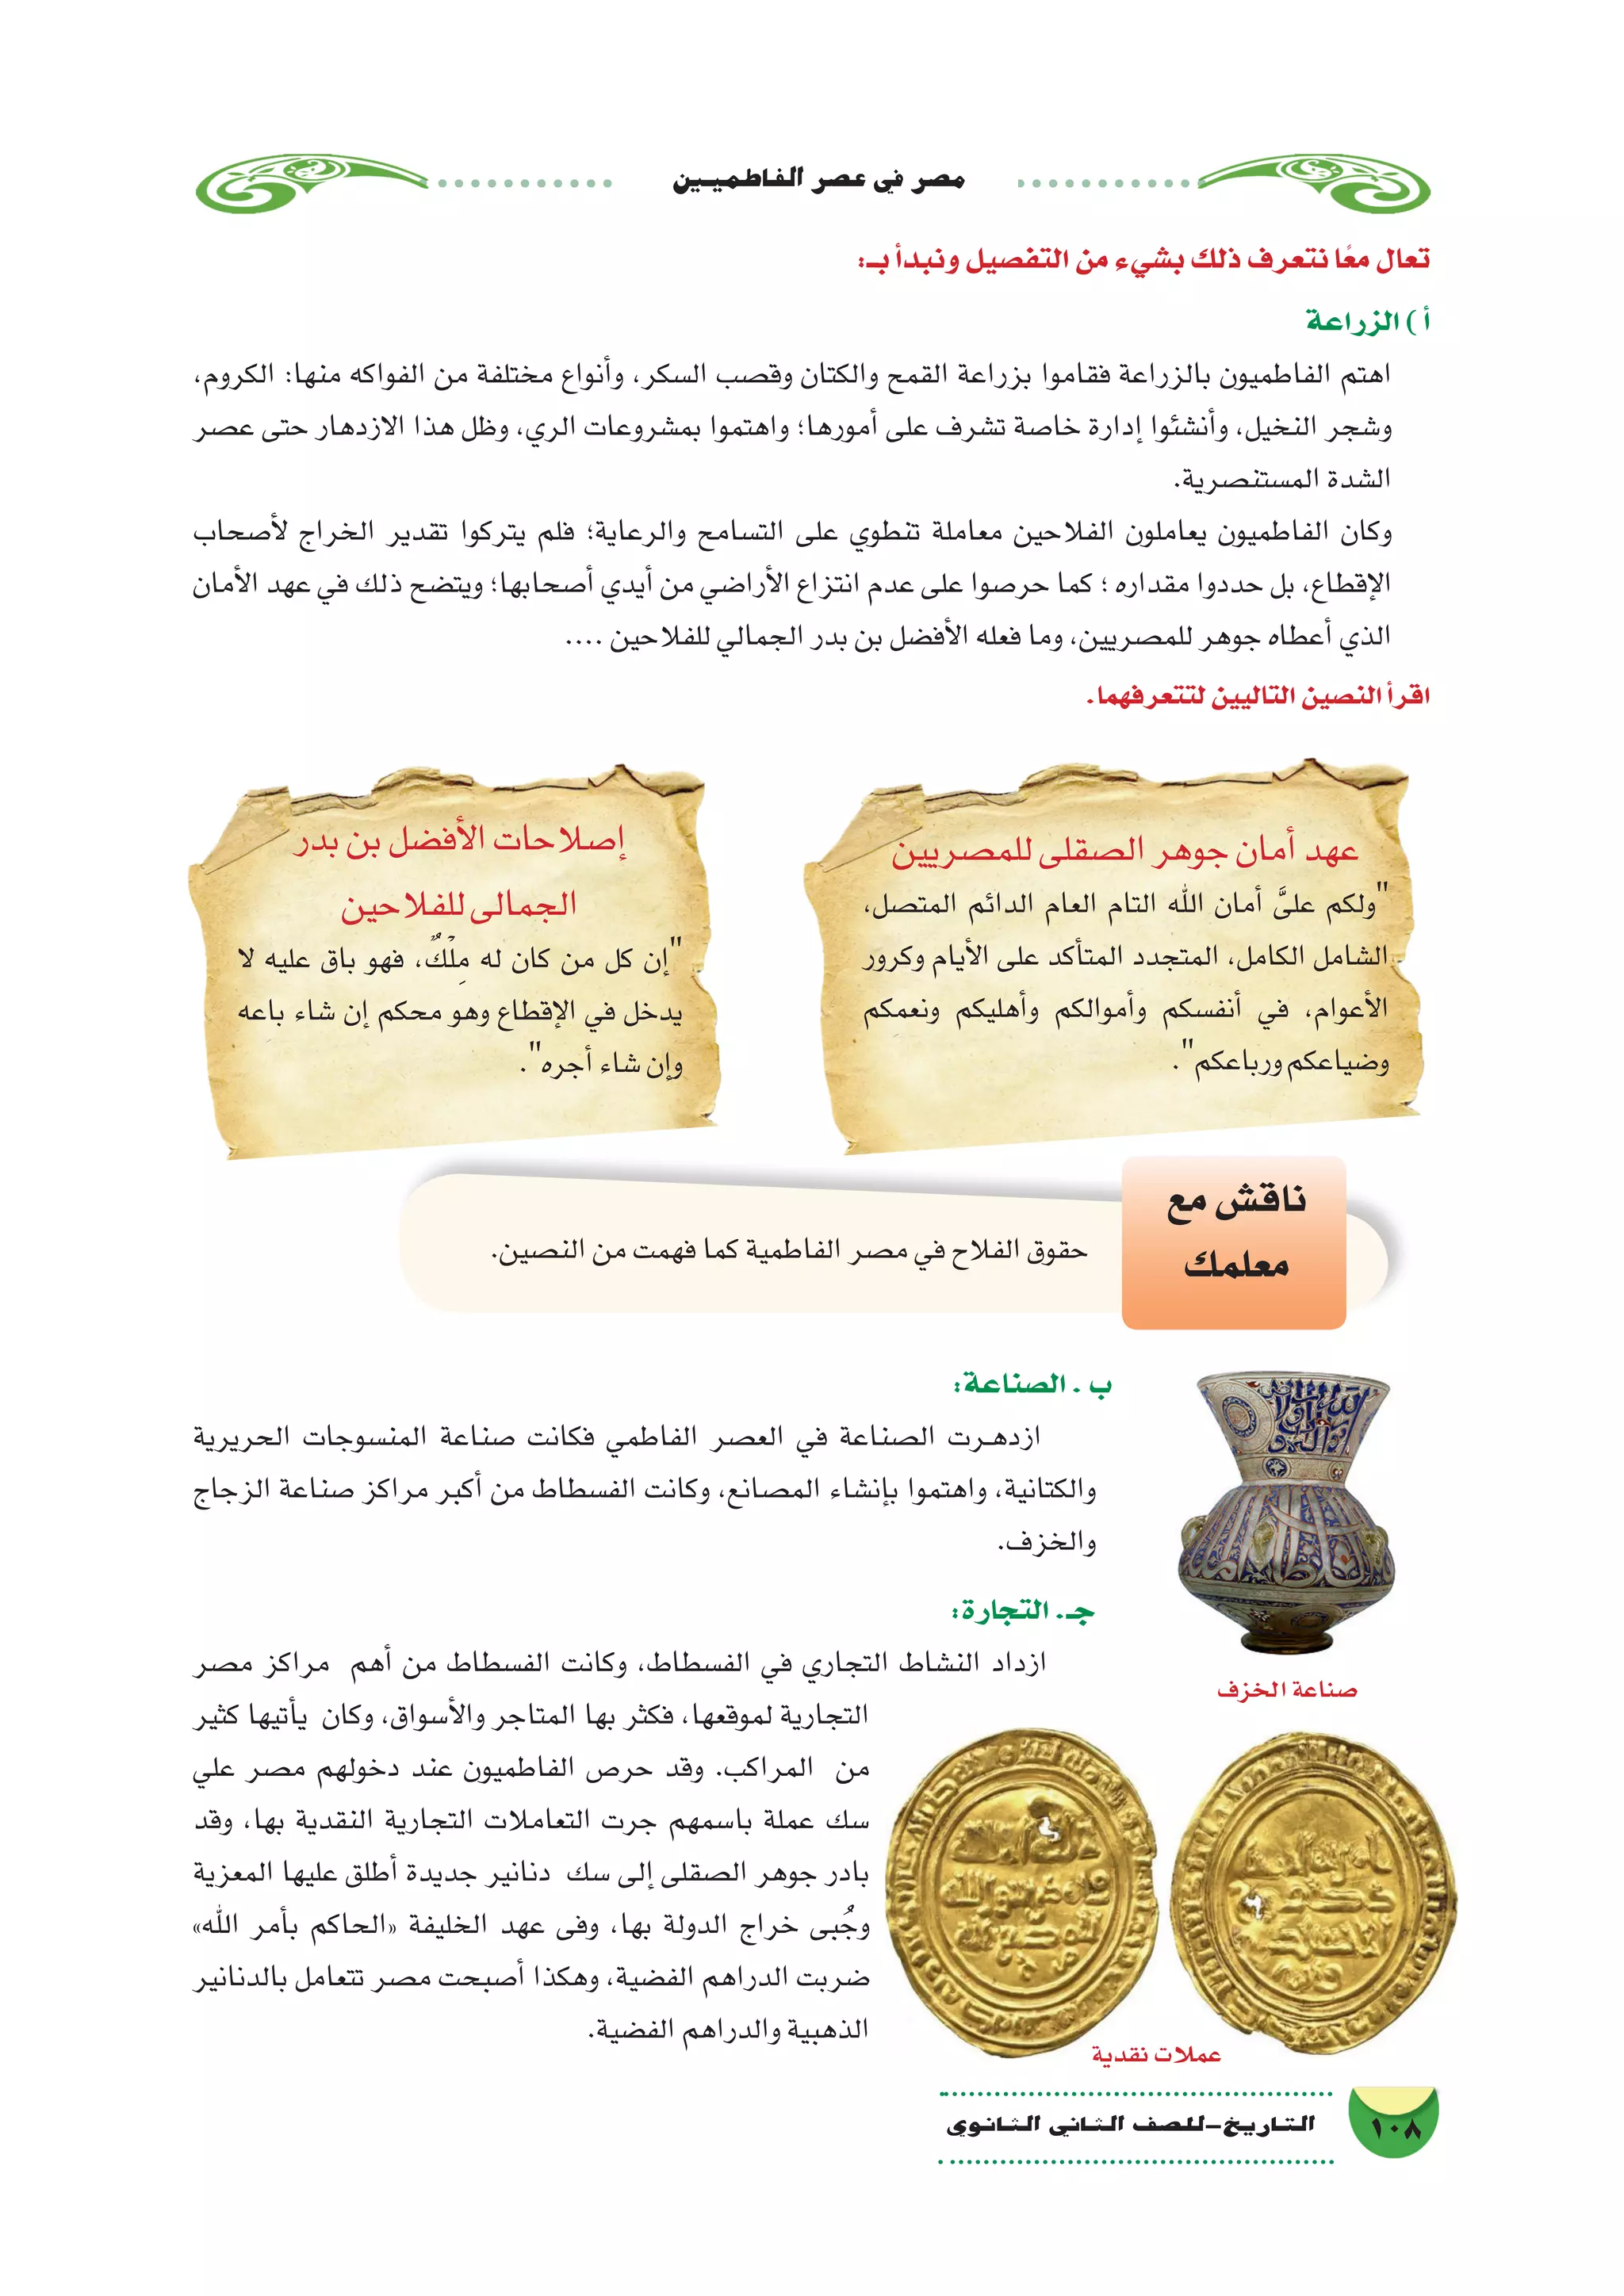 مصر فى عصر الفاطميـين
تعال معًا نتعرف ذلك بشيء من التفصيل ونبدأ بـ:
أ ) الزراعة
اهتم الفاطميون بالزراعة فقاموا بزراعة القمح والكتان وقصب السكر، وأنواع مختلفة من الفواكه منها: الكروم،
وشجر النخيل، وأنشئوا إدارة خاصة تشرف على أمورها؛ واهتموا بمشروعات الري، وظل هذا الازدهار حتى عصر
الشدة المستنصرية.
وكان الفاطميون يعاملون الفلاحين معاملة تنطوي على التسامح والرعاية؛ فلم يتركوا تقدير الخراج لأصحاب
الإقطاع، بل حددوا مقداره ؛ كما حرصوا على عدم انتزاع الأراضي من أيدي أصحابها؛ ويتضح ذلك في عهد الأمان
الذي أعطاه جوهر للمصريين، وما فعله الأفضل بن بدر الجمالي للفلاحين ....
اقرأ النصين التاليين لتتعرفهما.
عهد أمان جوهر الصقلى للمصريين
"ولكم علىَّ أمان الله التام العام الدائم المتصل،
الشامل الكامل، المتجدد المتأكد على الأيام وكرور
الأعوام، في أنفسكم وأموالكم وأهليكم ونعمكم
وضياعكم ورباعكم".
إصلاحات الأفضل بن بدر
الجمالى للفلاحين
"إن كل من كان له مِلْكٌ، فهو باق عليه لا
يدخل في الإقطاع وهو محكم إن شاء باعه
وإن شاء أجره".
ناقش مع
معلمك
حقوق الفلاح في مصر الفاطمية كما فهمت من النصين.
ب . الصناعة:
ازدهـرت الصناعة في العصر الفاطمي فكانت صناعة المنسوجات الحريرية
والكتانية، واهتموا بإنشاء المصانع، وكانت الفسطاط من أكبر مراكز صناعة الزجاج
والخزف.
صناعة الخزف
جـ. التجارة:
ازداد النشاط التجاري في الفسطاط، وكانت الفسطاط من أهم مراكز مصر
التجارية لموقعها، فكثر بها المتاجر والأسواق، وكان يأتيها كثير
من المراكب. وقد حرص الفاطميون عند دخولهم مصر علي
سك عملة باسمهم جرت التعاملات التجارية النقدية بها، وقد
بادر جوهر الصقلى إلى سك دنانير جديدة أطلق عليها المعزية
وجُبى خراج الدولة بها، وفى عهد الخليفة «الحاكم بأمر الله»
ضربت الدراهم الفضية، وهكذا أصبحت مصر تتعامل بالدنانير
الذهبية والدراهم الفضية.
عملات نقدية
التـاريـخ-للصف الثانى الثانوى
١٠٨